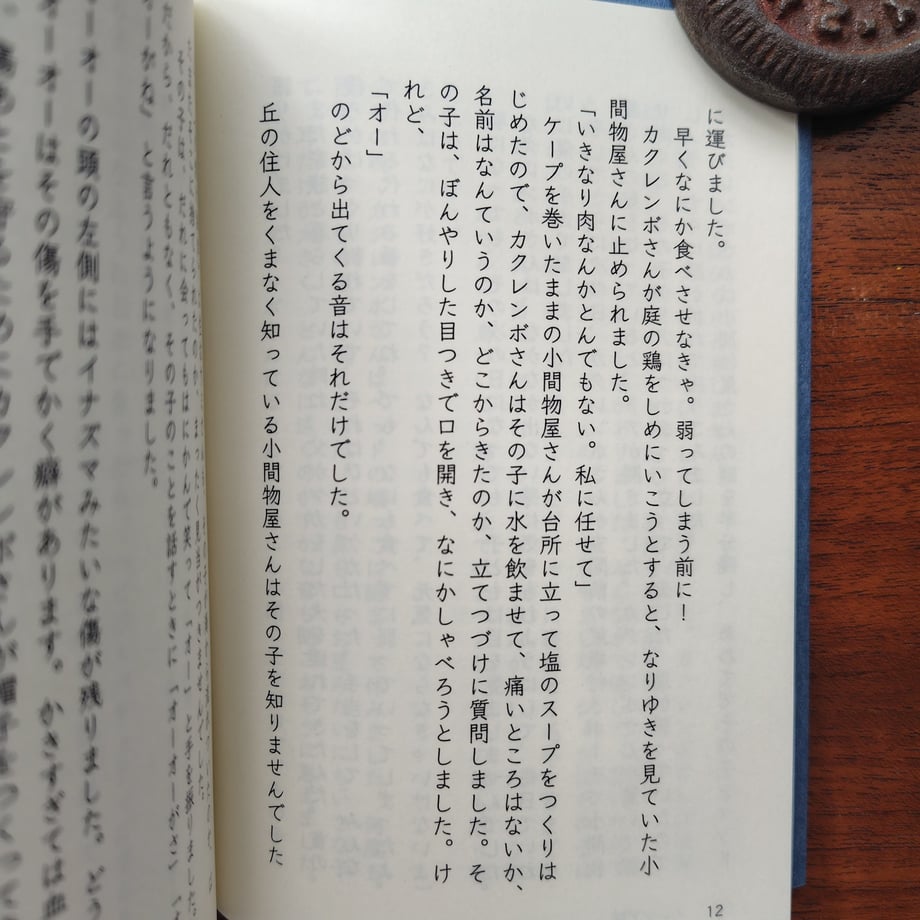 に運びました。
早くなにか食べさせなきゃ。弱ってしまう前に！
カクレンボさんが庭の鶏をしめにいこうとすると、なりゆきを見ていた小
間物屋さんに止められました。
「いきなり肉なんかとんでもない。私に任せて」
ケープを巻いたままの小間物屋さんが台所に立って塩のスープをつくりは
じめたので、カクレンボさんはその子に水を飲ませて、痛いところはないか、
名前はなんていうのか、どこからきたのか、立てつづけに質問しました。そ
の子は、ぼんやりした目つきで口を開き、なにかしゃべろうとしました。け
れど、
「オー」
のどから出てくる音はそれだけでした。
丘の住人をくまなく知っている小間物屋さんはその子を知りませんでした
12
その子は、だれに会ってもはにかんで笑って「オー」と手を振りました。
だから、だれともなく、その子のことを話すときに「オーオーがさ」「オ
ーオーがね」と言うようになりました。
オーオーの頭の左側にはイナズマみたいな傷が残りました。どう
オーオーはその傷を手でかく癖があります。かきすぎては血